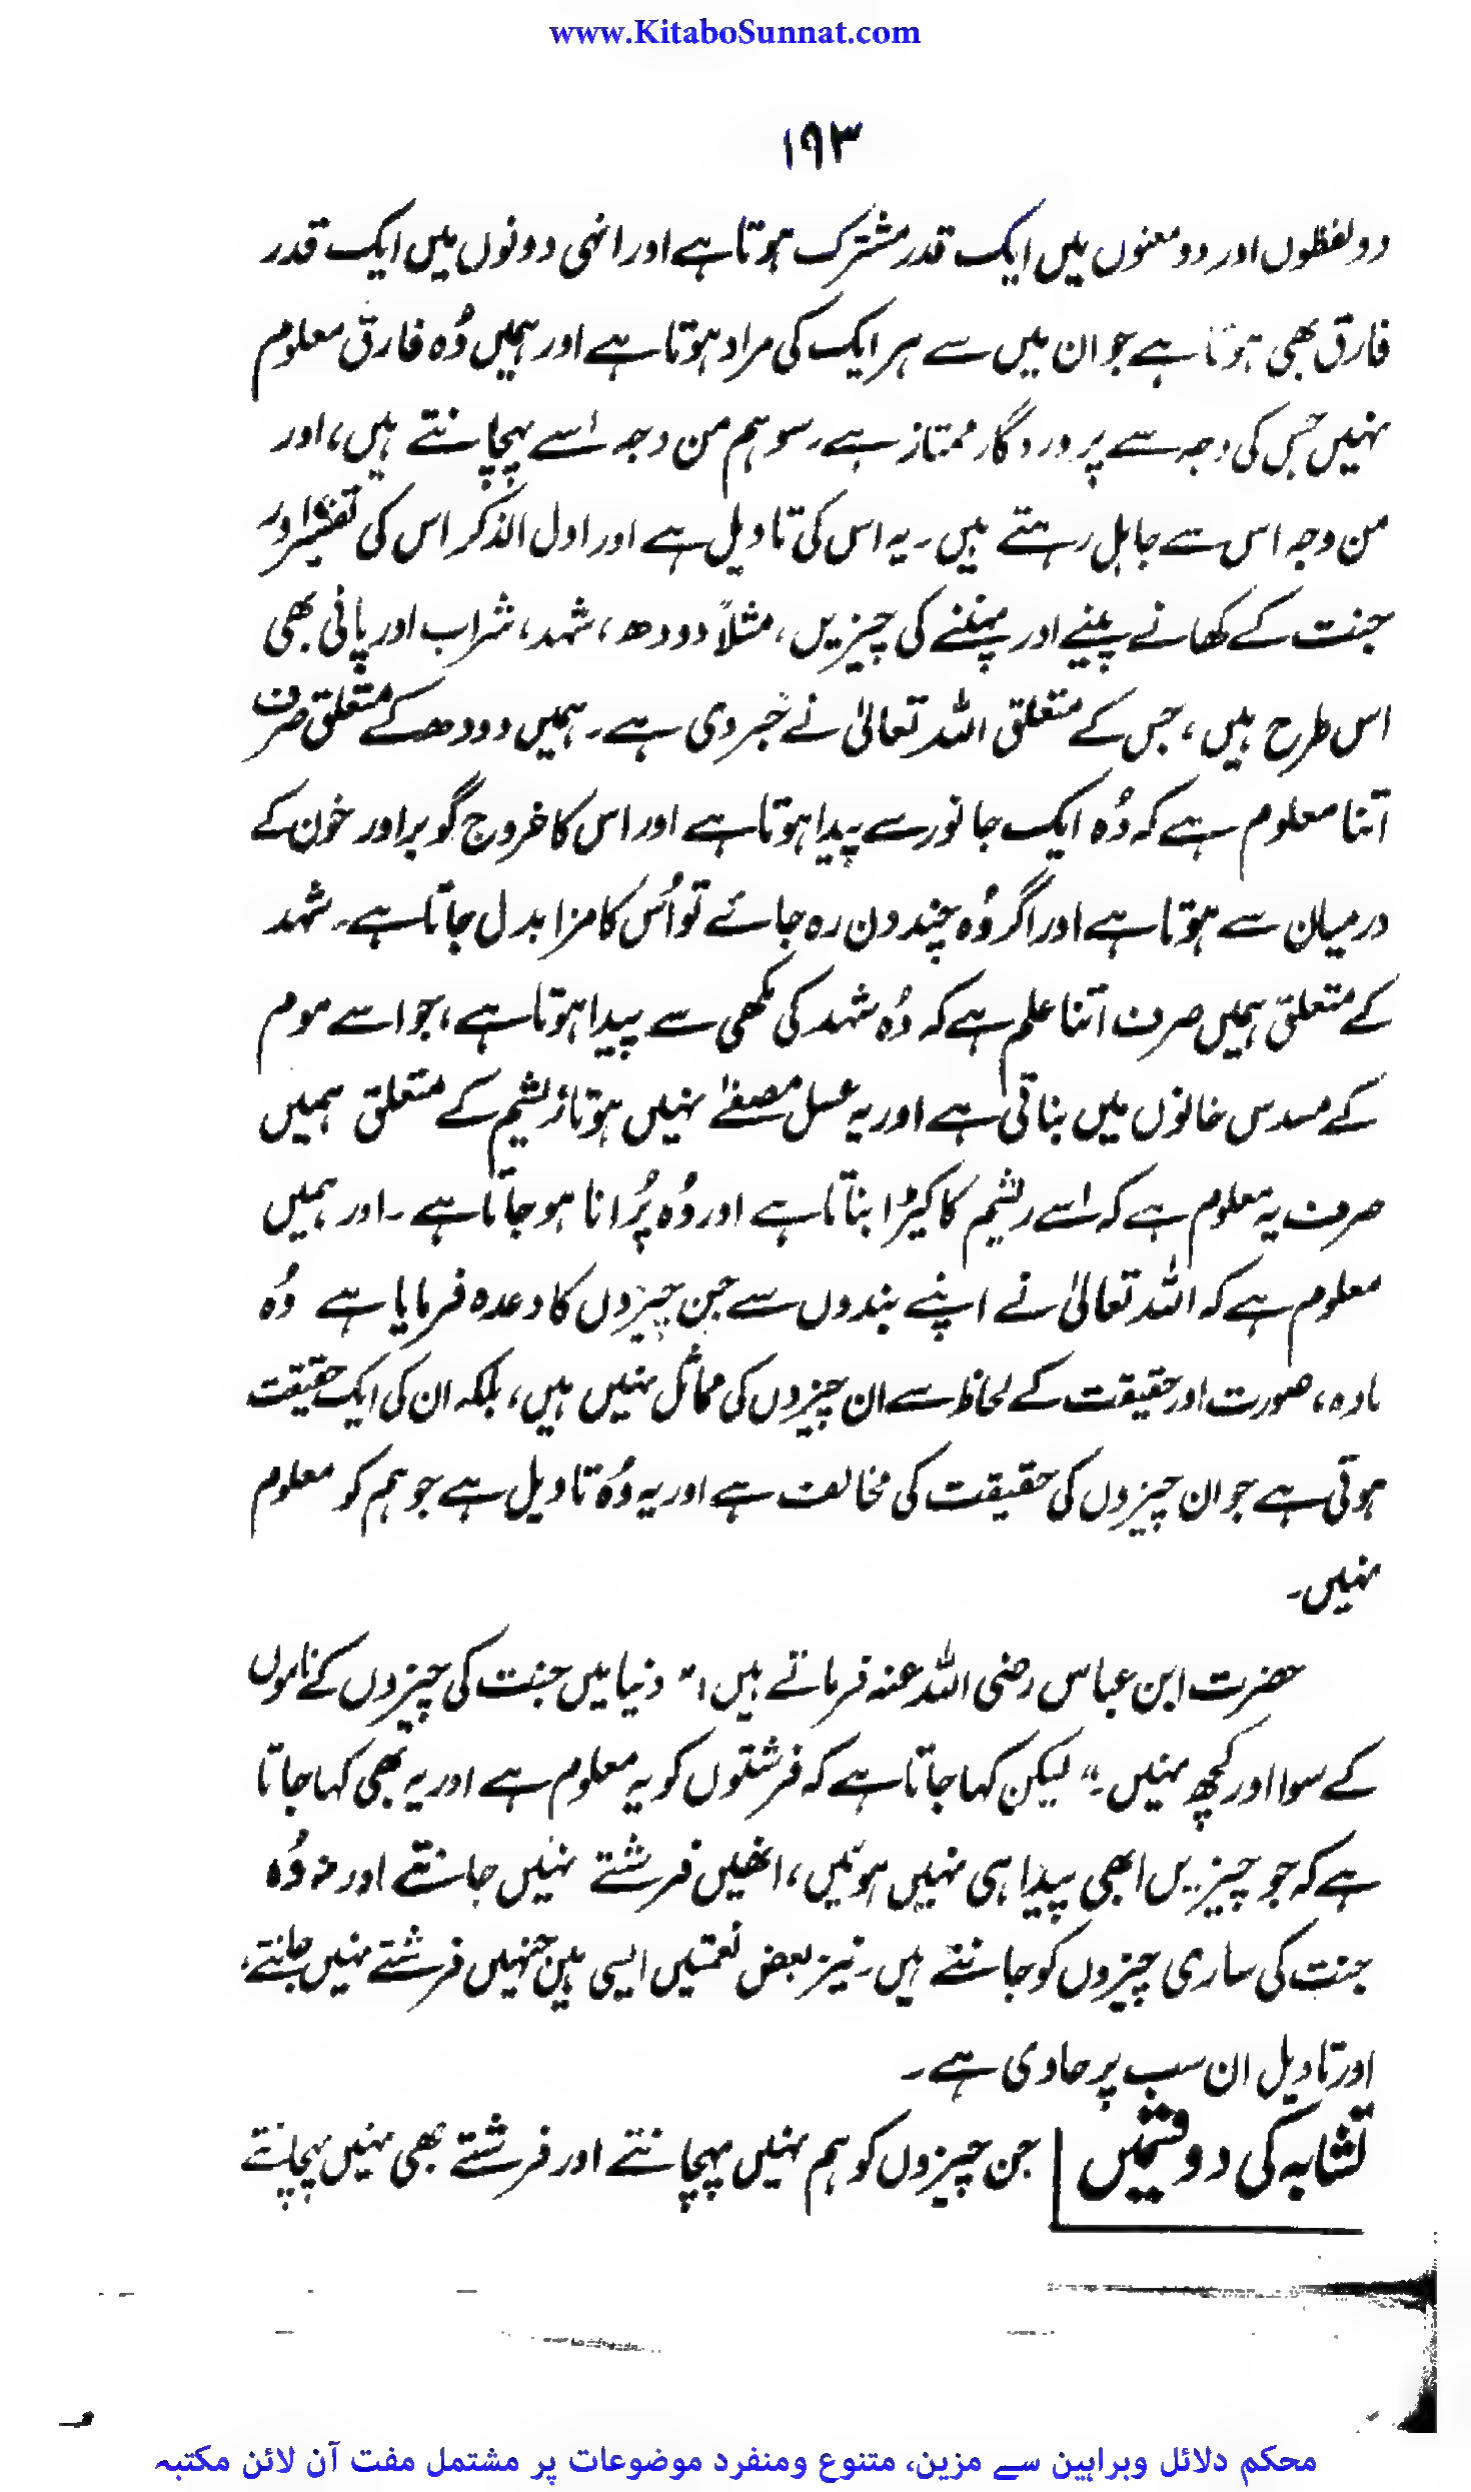 www.KitaboSunnat.com
۱۹۳
دو لفظوں اور دو معنوں میں ایک قدر مشترک ہوتا ہے اور انہی دونوں میں ایک قدر
فارق بھی ہوتا ہے جو ان میں سے ہر ایک کی مراد ہوتا ہے اور ہمیں وُہ فارق معلوم
نہیں جس کی وجہ سے پروردگار ممتاز ہے۔ سو ہم من وجہ اسے پہچانتے ہیں، اور
من وجہ اس سے جاہل رہتے ہیں۔ یہ اس کی تاویل ہے اور اول الذکر اس کی تفسیر اور
جنت کے کھانے پینے اور پہننے کی چیزیں، مثلاً دودھ، شہد، شراب اور پانی بھی
اس طرح ہیں، جس کے متعلق اللہ تعالیٰ نے خبر دی ہے۔ ہمیں دودھ کے متعلق صرف
اتنا معلوم ہے کہ وُہ ایک جانور سے پیدا ہوتا ہے اور اس کا خروج گوبر اور خون کے
درمیان سے ہوتا ہے اور اگر وُہ چند دن رہ جائے تو اُس کا مزا بدل جاتا ہے۔ شہد
کے متعلق ہمیں صرف اتنا علم ہے کہ وُہ شہد کی مکھی سے پیدا ہوتا ہے، جو اسے موم
کے مسدس خانوں میں بناتی ہے اور یہ عسل مصفےٰ نہیں ہوتا ریشم کے متعلق ہمیں
صرف یہ معلوم ہے کہ اسے ریشم کا کیڑا بناتا ہے اور وُہ پُرانا ہو جاتا ہے۔ اور ہمیں
معلوم ہے کہ اللہ تعالیٰ نے اپنے بندوں سے جن چیزوں کا وعدہ فرمایا ہے وُہ
مادہ، صورت اور حقیقت کے لحاظ سے ان چیزوں کی مماثل نہیں ہیں، بلکہ ان کی ایک حقیقت
ہوتی ہے جو ان چیزوں کی حقیقت کی مخالف ہے اور یہ وُہ تاویل ہے جو ہم کو معلوم
نہیں۔
حضرت ابن عباس رضی اللہ عنہ فرماتے ہیں، "دنیا میں جنت کی چیزوں کے ناموں
کے سوا اور کچھ نہیں۔" لیکن کہا جاتا ہے کہ فرشتوں کو یہ معلوم ہے اور یہ بھی کہا جاتا
ہے کہ جو چیزیں ابھی پیدا ہی نہیں ہوئیں، انھیں فرشتے نہیں جانتے اور نہ وُہ
جنت کی ساری چیزوں کو جانتے ہیں۔ نیز بعض نعمتیں ایسی ہیں جنہیں فرشتے نہیں جانتے،
اور تاویل ان سب پر حاوی ہے۔
تشابہ کی دو قسمیں جن چیزوں کو ہم نہیں پہچانتے اور فرشتے بھی نہیں پہچانتے
محکم دلائل وبراہین سے مزین، متنوع ومنفرد موضوعات پر مشتمل مفت آن لائن مکتبہ